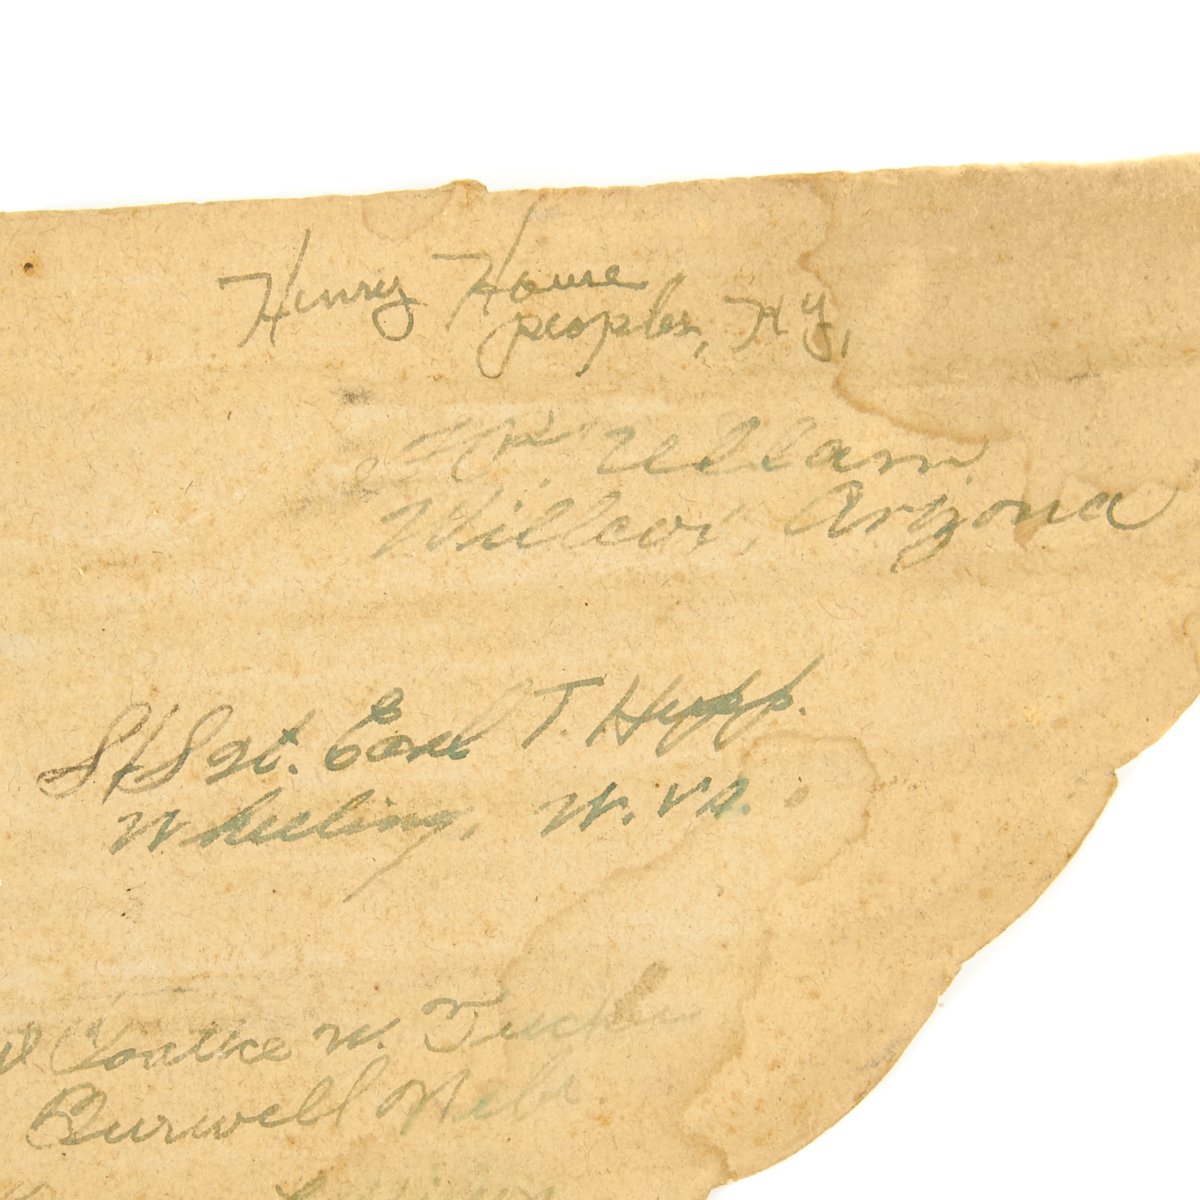 Henry House
peoples, Ky,
Wm. Ullam
Willcox, Arizona
S/Sgt. Earl T. Hupp.
Wheeling, W. VA.
W. Tucker
Burwell Nebr.